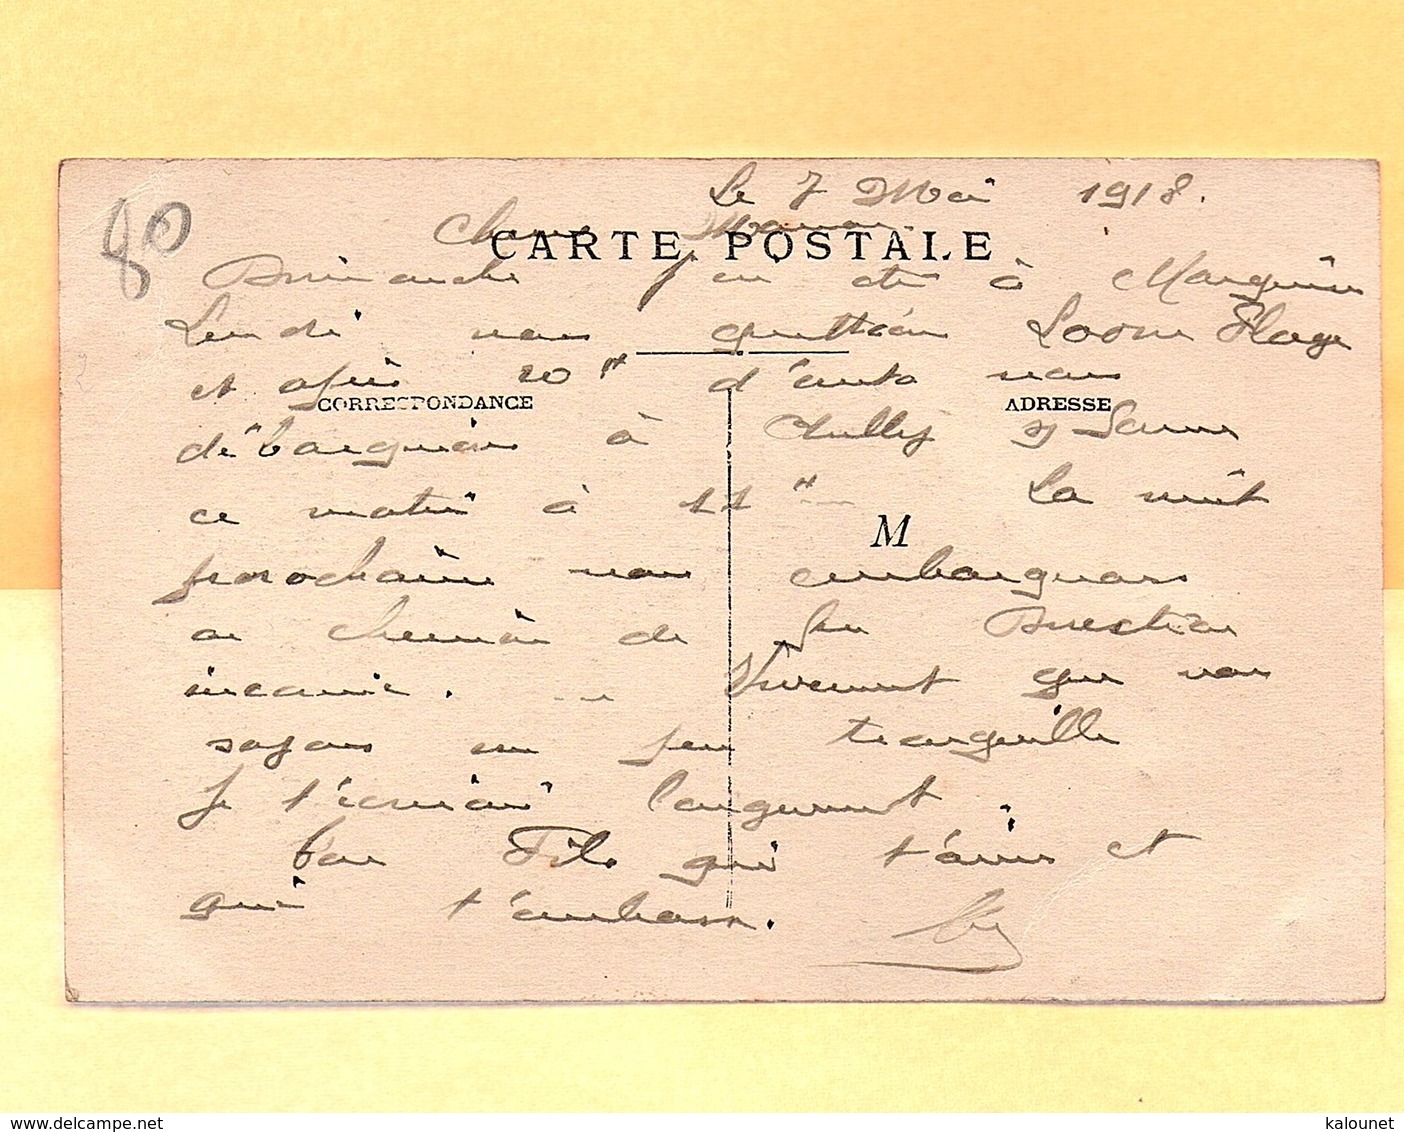 Le 7 Mai 1918.
80
Chere Maman
CARTE POSTALE
Dimanche j'en été à
Lundi nous quittions Loone Plage
et après 20 H d'auto nous
CORRESPONDANCE
ADRESSE
débarquions à Chilly
ce matin à 11 H La nuit
M
prochaine nous embarquons
en chemin de fer Direction
inconnue. Vivement que nous
soyons un peu tranquille
Je t'écrirai longuement.
Ton Fils qui t'aime et
qui t'embrasse.
kalounet